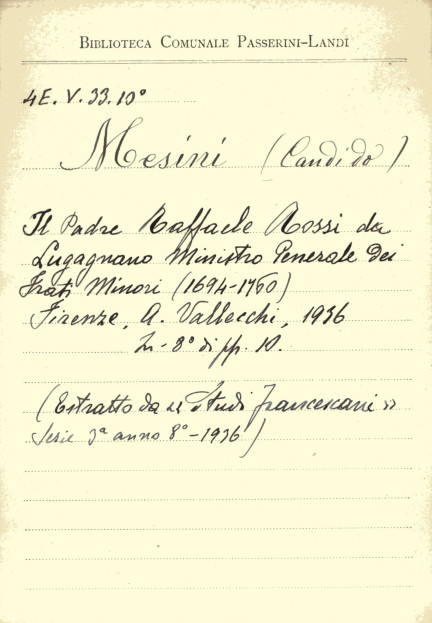 BIBLIOTECA COMUNALE PASSERINI-LANDI
4E. V. 33. 10°
Mesini (Candido)
Il Padre Raffaele Rossi da
Lugagnano Ministro Generale dei
Frati Minori (1694-1760)
Firenze, A. Vallecchi, 1936
In-8° di pp. 10.
(Estratto da « Studi francescani »
Serie 3ª anno 8° - 1936)